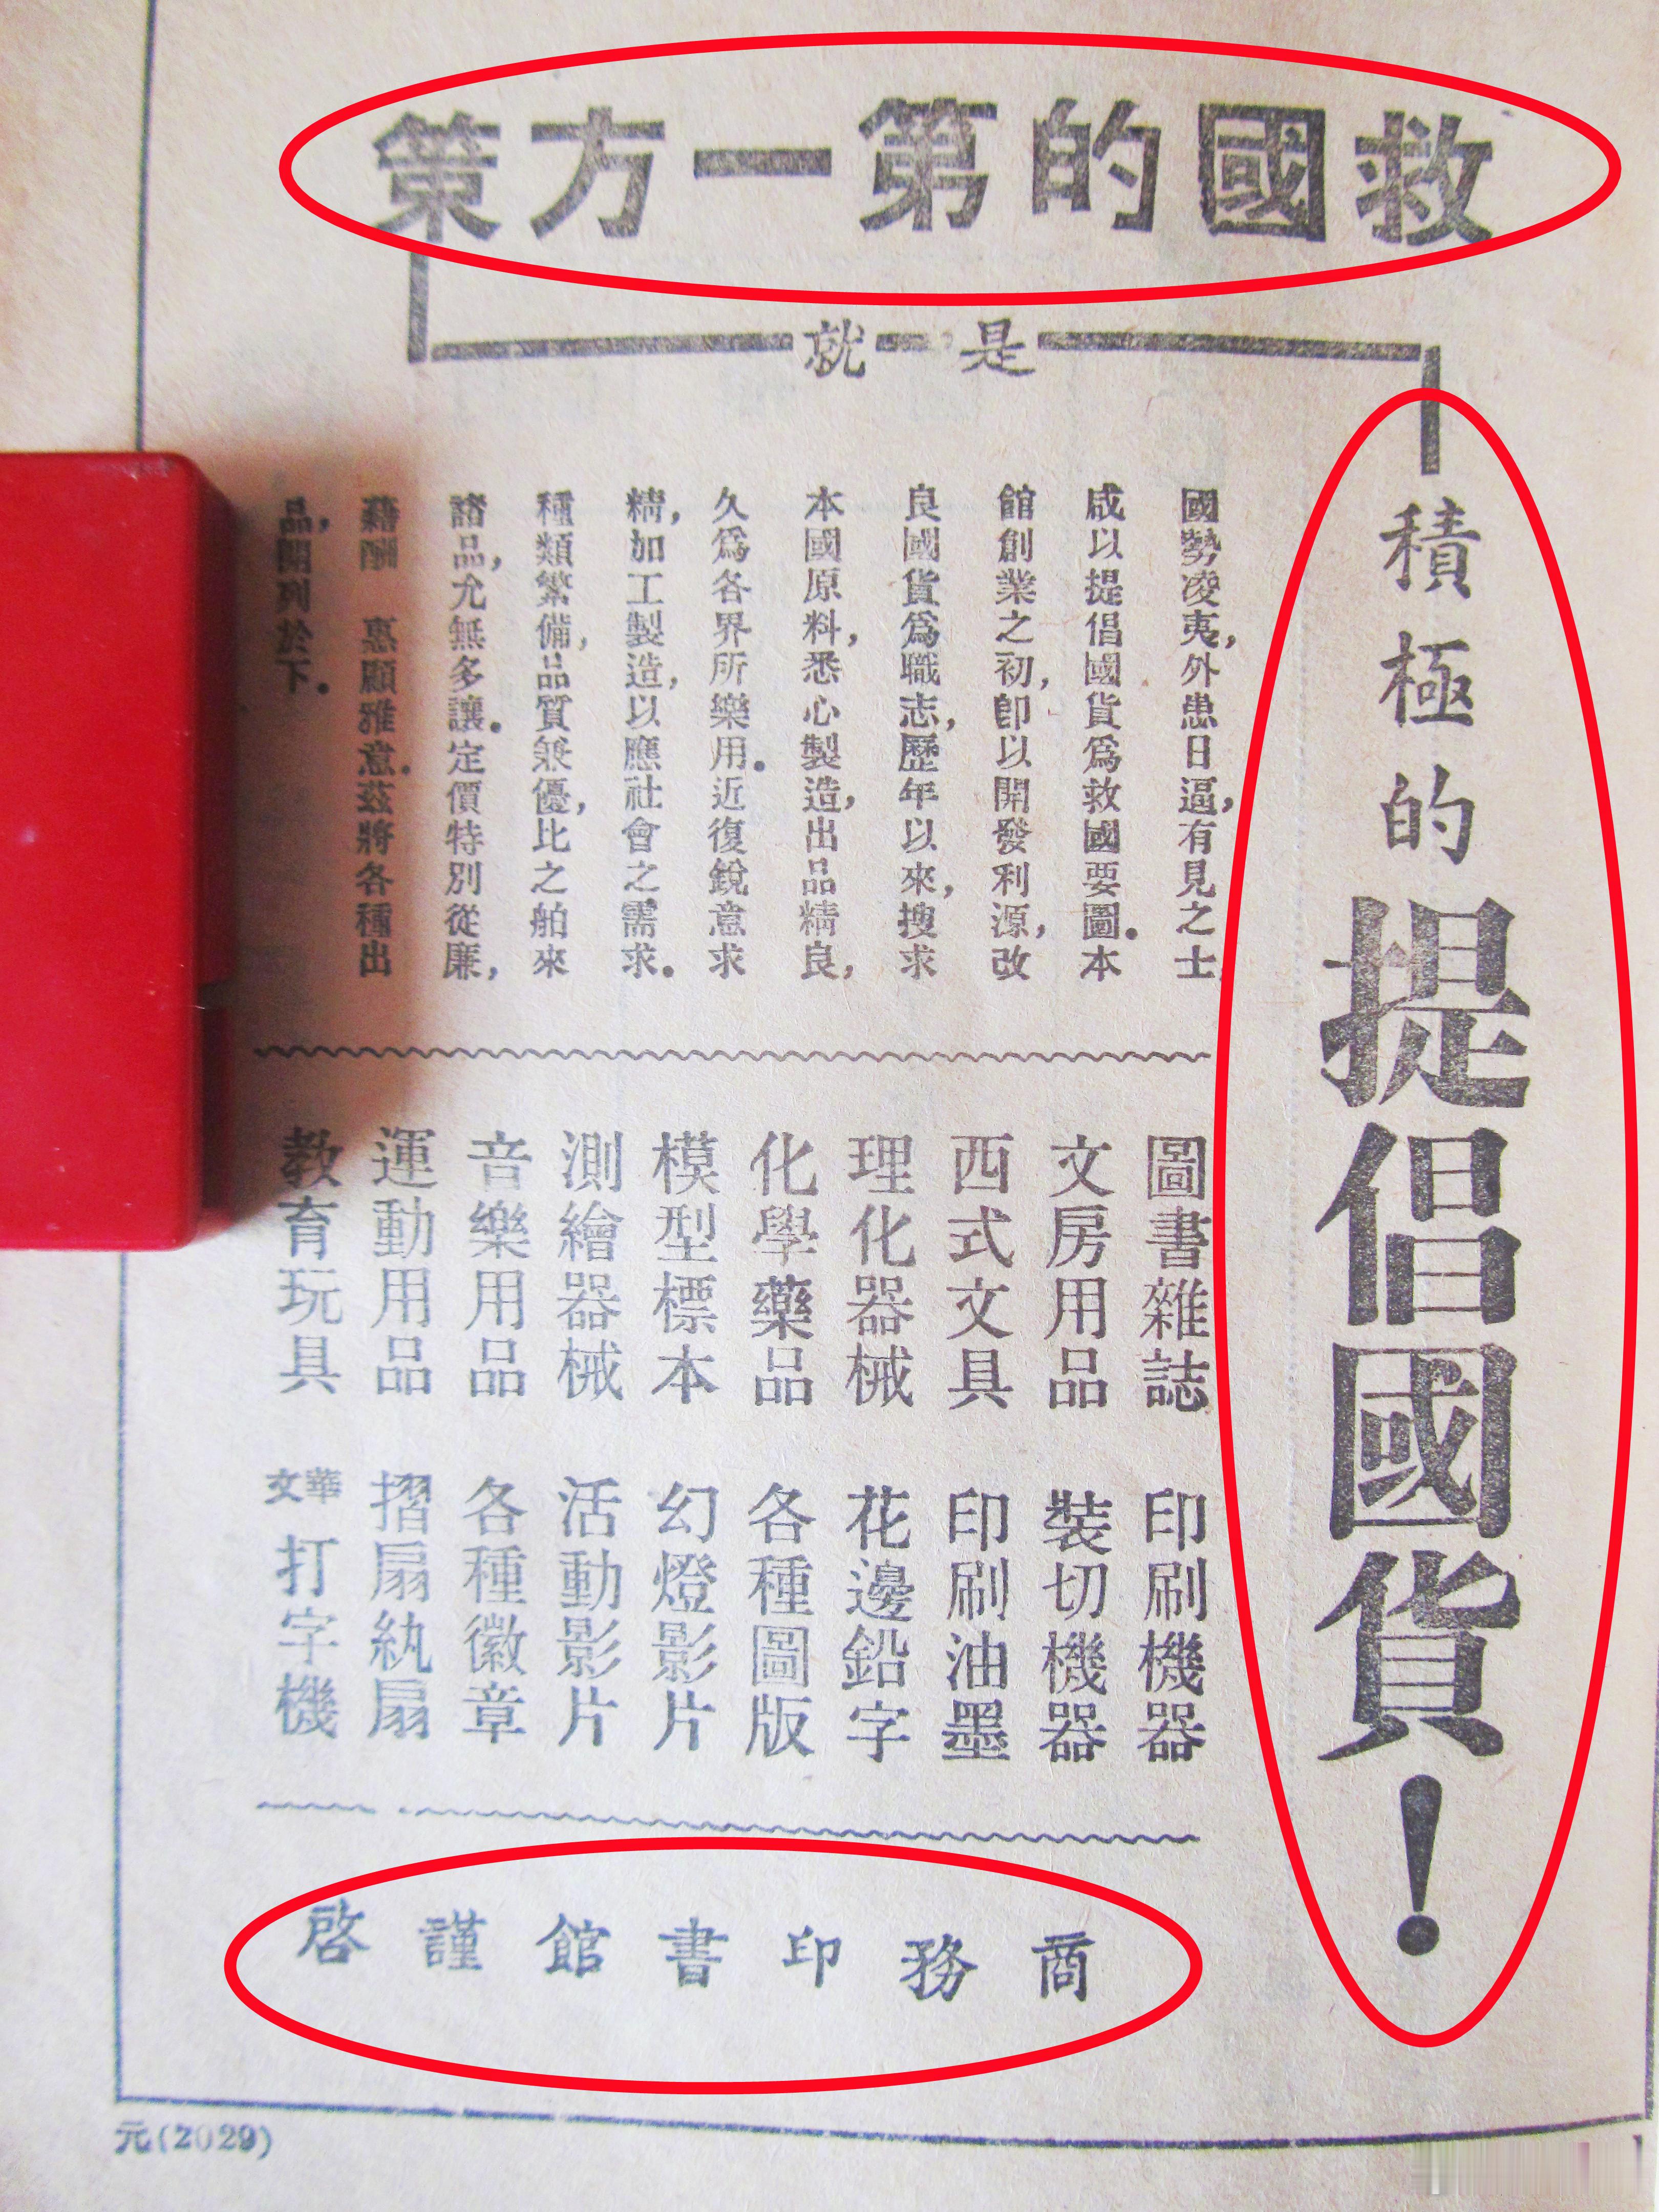 救國的第一方策
就是
積極的提倡國貨！
國勢凌夷，外患日逼，有見之士，
咸以提倡國貨爲救國要圖。本
館創業之初，卽以開發利源，改
良國貨爲職志，歷年以來，搜求
本國原料，悉心製造，出品精良，
久爲各界所樂用。近復銳意求
精，加工製造，以應社會之需求。
種類繁備，品質兼優，比之舶來
諸品，允無多讓。定價特別從廉，
藉酬　惠顧雅意。茲將各種出
品，開列於下。
圖書雜誌
文房用品
西式文具
理化器械
化學藥品
模型標本
測繪器械
音樂用品
運動用品
教育玩具
印刷機器
裝切機器
印刷油墨
花邊鉛字
各種圖版
幻燈影片
活動影片
各種徽章
摺扇紈扇
華文打字機
商務印書館謹啓
元(2029)